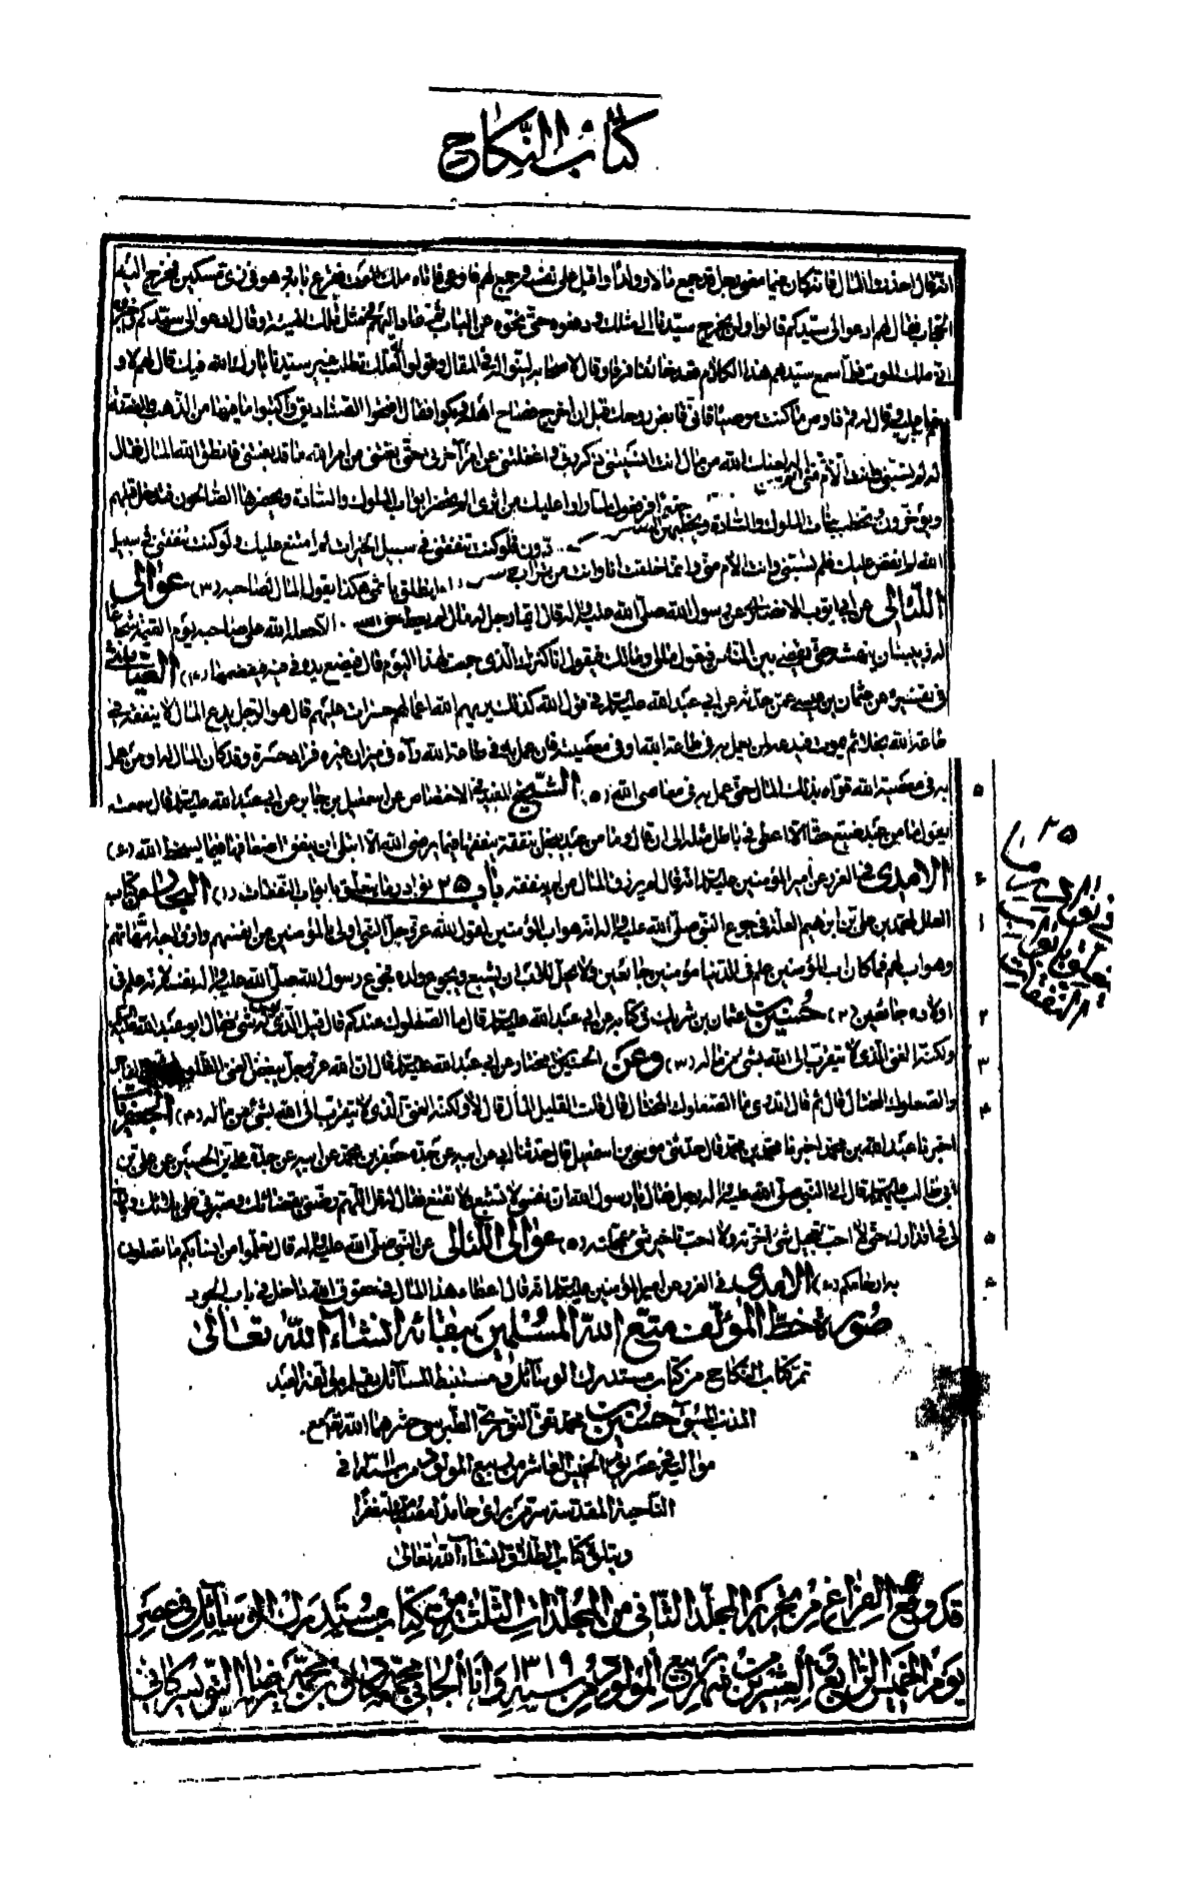 كتاب النكاح
انه قال احذروا المال فانه كان فيما مضى رجل قد جمع مالا وولدا واقبل على نفسه وجمع لهم فاوعى فاتاه ملك الموت فقرع بابه وهو في زي مسكين فخرج اليه
الحجاب فقال لهم ادعوا الي سيدكم قالوا اويخرج سيدنا الى مثلك ودفعوه حتى نحوه عن الباب ثم عاد اليهم في مثل تلك الهيئة وقال ادعوا الي سيدكم واخبروه
اني ملك الموت فلما سمع سيدهم هذا الكلام قعد خائفا فرقا وقال لاصحابه لينوا له في المقال وقولوا له لعلك تطلب غير سيدنا بارك الله فيك قال لهم لا و
دخل عليه وقال له قم فاوص ما كنت موصيا فاني قابض روحك قبل ان اخرج فصاح اهله وبكوا فقال افتحوا الصناديق واكتبوا ما فيها من الذهب والفضة
لعنك الله من مال انت انسيتني ذكر ربي واغفلتني عن امر آخرتي حتى بغتني من امر الله ما قد بغتني فانطق الله المال فقال
له لم تسبني وانت الام مني
ابواب الملوك والسادة ويحضرها الصالحون فتدخل قبلهم
ويؤخرون الم تخطب بنات الملوك والسادة ويخطبهن
فلو كنت تنفقني في سبيل الخيرات لم امتنع عليك ولو كنت تنفقني في سبيل
الله لم انقص عليك فلم تسبني وانت الام مني وانما خلقت انا وانت من تراب
هكذا يقول المال لصاحبه (٣) عوالي
اللئالي عن ابي ايوب الانصاري عن رسول الله صلى الله عليه وآله قال
الا جعله الله على صاحبه يوم القيمة شجاعا
له زبيبتان ينهشه حتى يقضى بين الناس فيقول مالي ومالك فيقول انا كنزك الذي جمعت لهذا اليوم قال فيضع يده في فيه فيقضمها (٤) العياشي
في تفسيره عن عثمان بن عيسى عمن حدثه عن ابي عبد الله عليه السلام في قول الله كذلك يريهم الله اعمالهم حسرات عليهم قال هو الرجل يدع المال لا ينفقه في
طاعة الله بخلا ثم يموت فيدعه لمن يعمل به في طاعة الله او في معصيته فان عمل به في طاعة الله رآه في ميزان غيره فزاده حسرة وقد كان المال له او من عمل
به في معصية الله قواه بذلك المال حتى عمل به في معاصي الله (٥) الشيخ المفيد في الاختصاص عن اسمعيل بن جابر عن ابي عبد الله عليه السلام قال سمعته
يقول ما من عبد ضيع حقا الا اعطى في باطل مثليه الى ان قال وما من عبد يبخل بنفقة ينفقها فيما يرضي الله الا ابتلي ان ينفق اضعافها فيما يسخط الله (٦)
الآمدي في الغرر عن امير المؤمنين عليه السلام انه قال لم يرزق المال من لم ينفقه باب ٢٥ نوادر ما يتعلق بابواب النفقات (١) البحار عن كتاب
العلل لمحمد بن علي بن ابراهيم العلة في جوع النبي صلى الله عليه وآله انه هو اب المؤمنين لقول الله عز وجل النبي اولى بالمؤمنين من انفسهم وازواجه امهاتهم
وهو اب لهم فلما كان اب المؤمنين علم في الدنيا مؤمنين جائعين ولا يحل للاب ان يشبع ويجوع ولده فجوع رسول الله صلى الله عليه وآله نفسه لانه علم في
اولاده جائعين (٢) حسين بن عثمان بن شريك في كتابه عن ابي عبد الله عليه السلام قال ما الصعلوك عندكم قال قيل الذي ليس له شيء فقال ابو عبد الله عليه السلام
ولكنه الغني الذي لا يتقرب الى الله بشيء من ماله (٣) وعن الحسين بن مختار عن ابي عبد الله عليه السلام قال ان الله عز وجل يبغض الغني الظلوم
والصعلوك المختال قال ثم قال اتدري ما الصعلوك المختال قال قلت القليل المال قال لا ولكنه الغني الذي لا يتقرب الى الله بشيء من ماله (٤) الجعفريات
اخبرنا عبد الله بن محمد اخبرنا محمد بن محمد قال حدثني موسى بن اسمعيل قال حدثنا ابي عن ابيه عن جده جعفر بن محمد عن ابيه عن جده علي بن الحسين عن ابيه عن علي بن
ابي طالب عليه السلام قال اتى النبي صلى الله عليه وآله رجل فقال يا رسول الله ان نفسي لا تشبع ولا تقنع فقال له قل اللهم رضني بقضائك وصبرني على بلائك وبارك
لي في اقدارك حتى لا احب تعجيل شيء اخرته ولا احب تاخير شيء عجلته (٥) عوالي اللئالي عن النبي صلى الله عليه وآله قال تعلموا من انسابكم ما تصلون
به ارحامكم (٥) الآمدي في الغرر عن امير المؤمنين عليه السلام انه قال اعطاء هذا المال في حقوق الله داخل في باب الجود
صورة خط المؤلف متع الله المسلمين ببقائه انشاء الله تعالى
تم كتاب النكاح من كتاب مستدرك الوسائل ومستنبط المسائل بقلم مؤلفه العبد
المذنب المسيء حسين بن محمد تقي النوري الطبرسي حشرهما الله تعالى مع
مواليه في عصر يوم الخميس العاشر من ربيع المولود من السنة في
الناحية المقدسة سر من رأى حامدا مصليا مستغفرا
ويتلوه كتاب الطلاق انشاء الله تعالى
قد وقع الفراغ من تحرير المجلد الثاني من المجلدات الثلثة من كتاب مستدرك الوسائل في عصر
يوم الخميس الرابع والعشرين من شهر ربيع المولود من سنة ١٣١٩ وانا الجاني محمد صادق بن محمد رضا التويسركاني
٥
٦
١
٢
٣
٤
٥
٢٥
في نوادر ما
يتعلق بابواب
النفقات